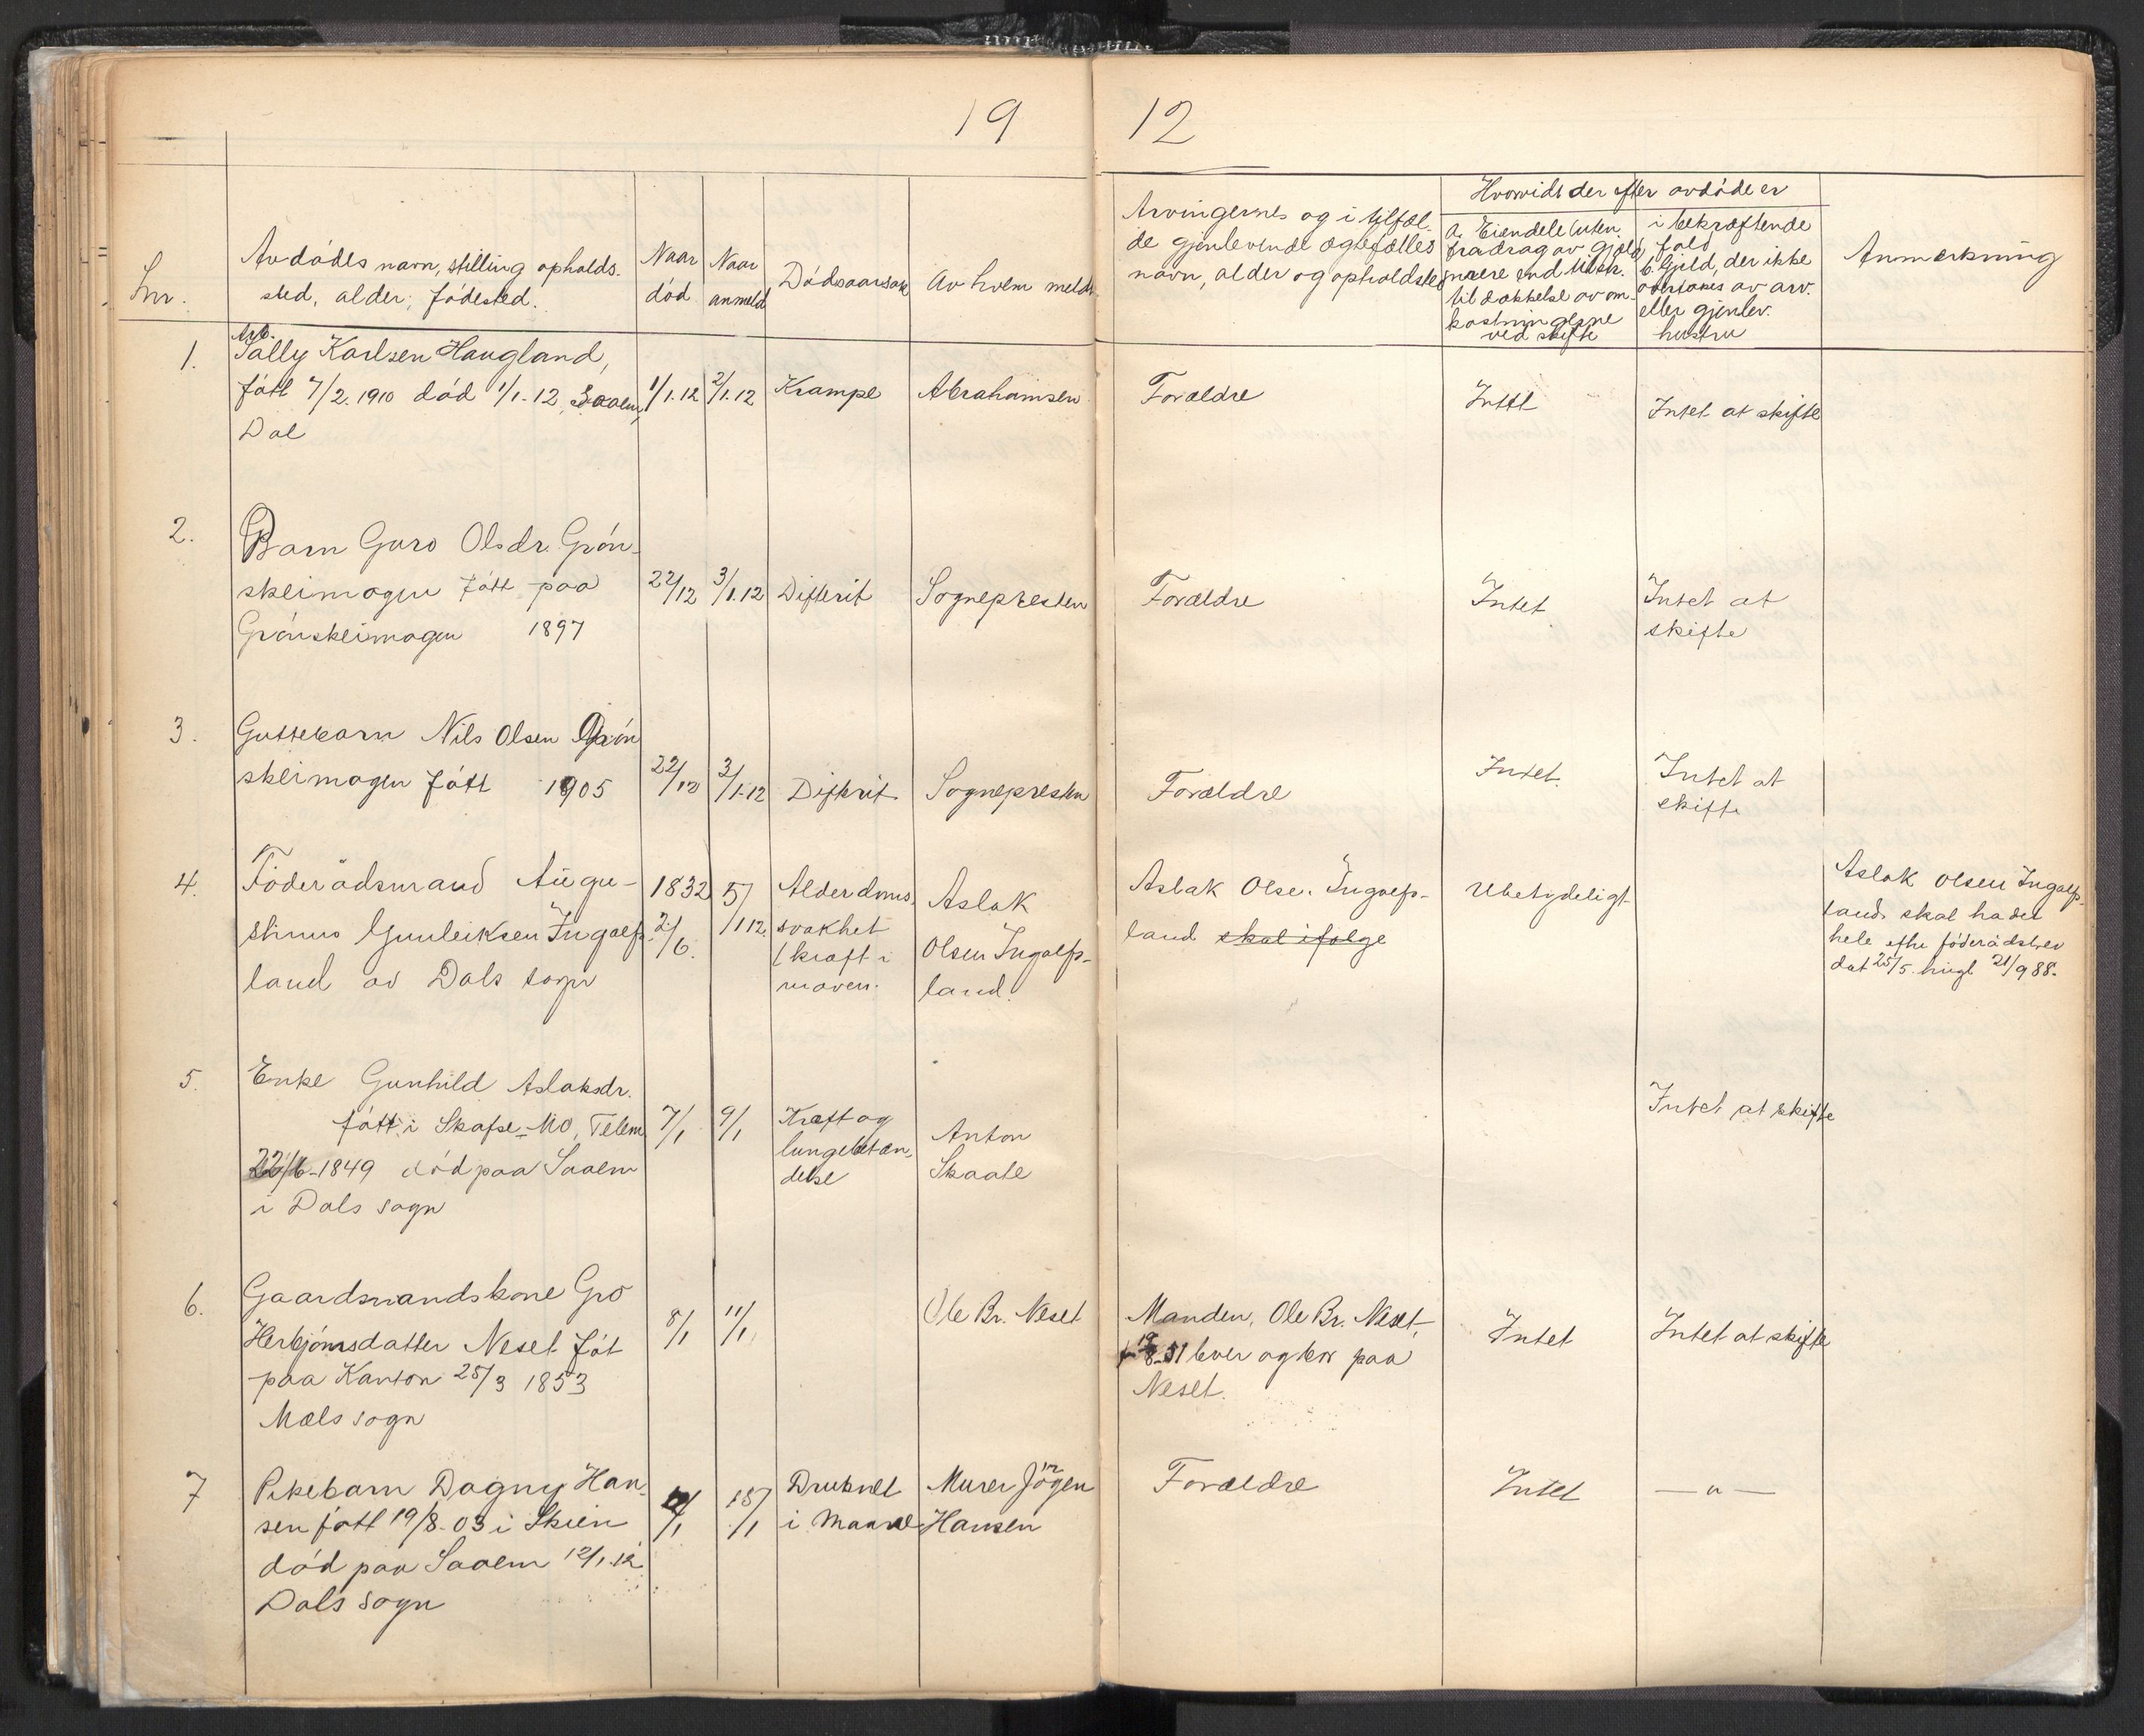 19 12
Lnr.
Avdødes navn, stilling opholds-
sted, alder, fødested.
Naar
død
Naar
anmeldt
Dødsaarsak
Av hvem meldt
Arvingernes og i tilfæl-
de gjenlevende ægtefælles
navn, alder og opholdsted
Hvorvidt der efter avdøde er
a. Eiendele (uten
fradrag av gjæld)
mere end
til dækkelse av om-
kostningerne
ved skifte
i bekræftende
fald
b. Gjeld, der ikke
overtakes av arv.
eller gjenlev.
hustru
Anmerkning
1.
Sally Karlsen Haugland,
født 7/2. 1910 død 1/1-12, Saaem,
Dal
1/1.12
2/1.12
Krampe
Abrahamsen
Forældre
Intet
Intet at skifte
2.
Barn Guro Olsdr. Grøn-
skeimogen født paa
Grønskeimogen 1897
22/12
3/1.12
Difterit
Sognepresten
Forældre
Intet
Intet at
skifte
3.
Guttebarn Nils Olsen Grøn
skeimogen født 1905
22/12
3/1-12
Difterit
Sognepresten
Forældre
Intet.
Intet at
skifte
4.
Föderådsmand Augu-
stinus Gunleiksen Ingolfs-
land av Dals sogn
1832
2/6.
5/
1 12.
Alderdoms
svakhet
(kræft i
maven.
Aslak
Olsen Ingolfs-
land.
Aslak Olsen Ingolfs-
land skal ifølge
Ubetydeligt
Aslak Olsen Ingolfs-
land skal ha det
hele efter föderådsbrev
dat 25/5. tingl 21/9 88.
5.
Enke Gunhild Aslaksdr.
født i Skafse-Mo, Telem.
22/6-1849 død paa Saaem
i Dals sogn
7/1
9/1
Kræft og
lungebetæn-
delse
Anton
Skaale
Intet at skifte
6.
Gaardmandskone Gro
Herbjørnsdatter Neset føt
paa Kanton 25/3 1853
Mæls sogn
8/1
11/1
Ole Br. Neset
Manden, Ole Br. Neset,
f. 19/8-51 lever og bor paa
Neset.
Intet
Intet at skifte
7
Pikebarn Dagny Han-
sen født 19/8-03 i Skien
død paa Saaem 12/1.12
Dals sogn
12/1
15/1
Druknet
i Maane
Murer Jörgen
Hansen
Forældre
Intet
— " —